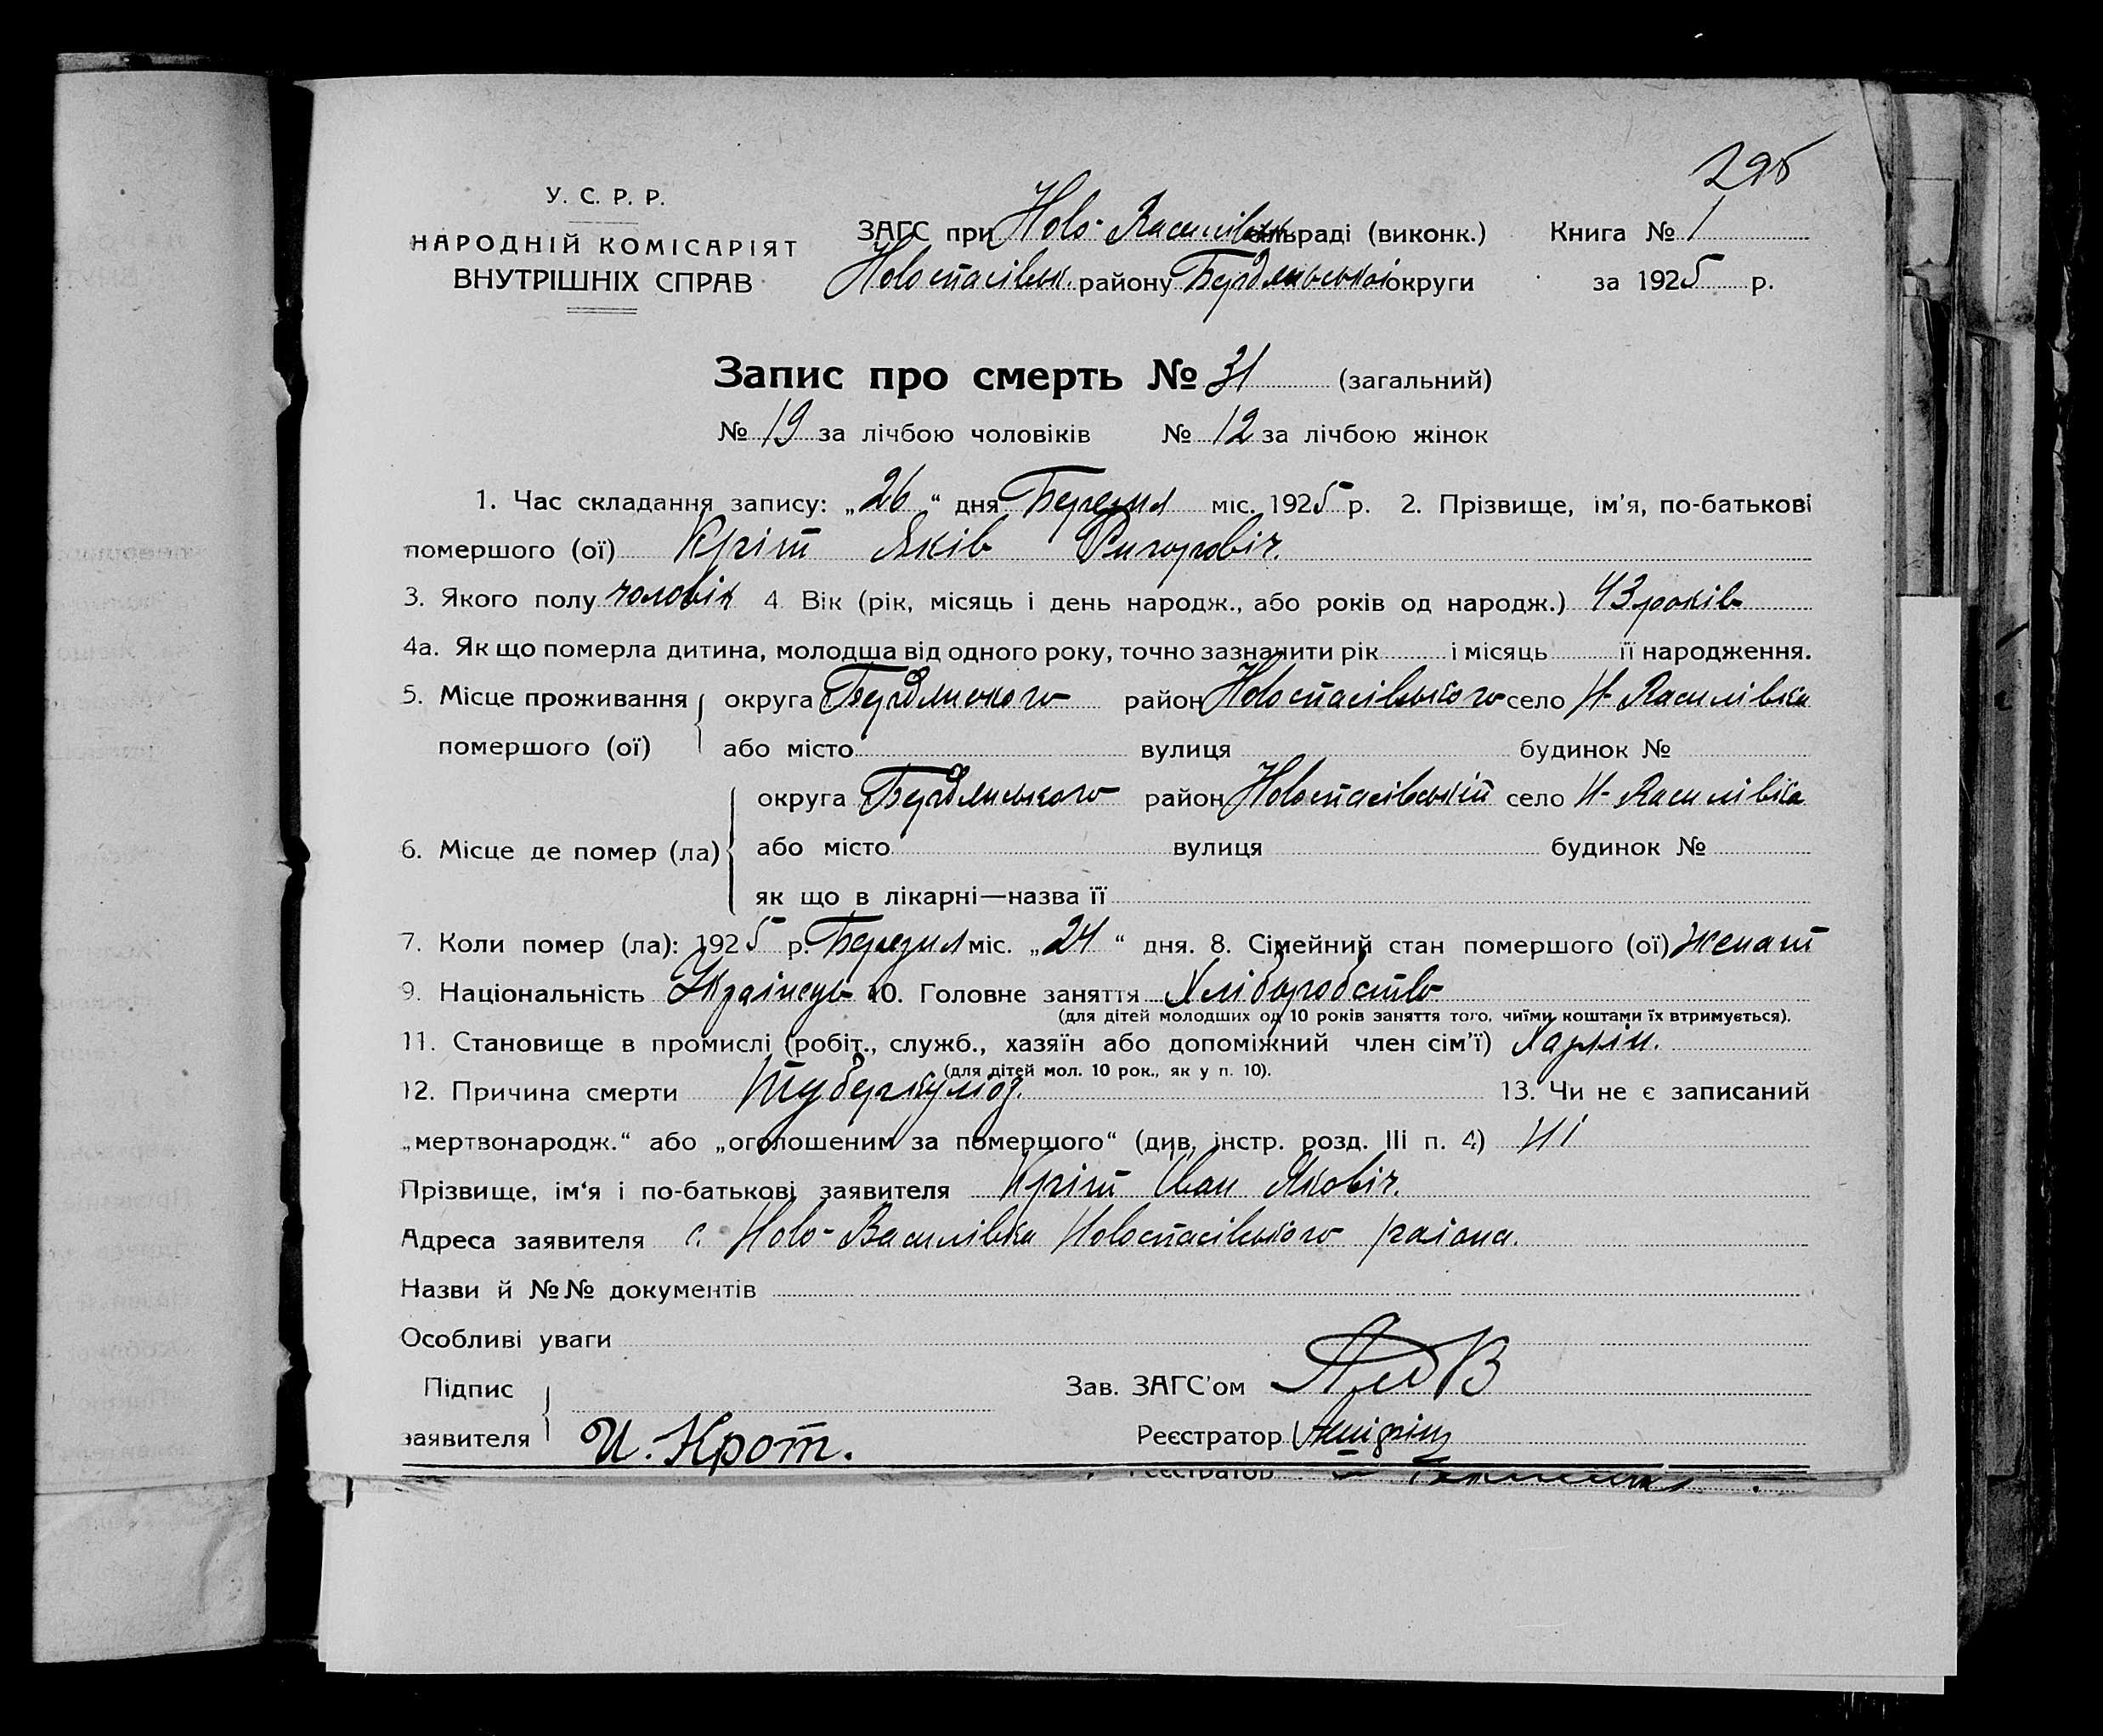 295
У. С. Р. Р.
НАРОДНІЙ КОМІСАРІЯТ
ВНУТРІШНІХ СПРАВ
ЗАГС при Ново-Василівськ сільраді (виконк.) Книга № 1
Новоспасівськ. району Бердянської округи за 1925 р.
Запис про смерть № 31 (загальний)
№ 19 за лічбою чоловіків № 12 за лічбою жінок
1. Час складання запису: „26“ дня Березня міс. 1925 р. 2. Прізвище, ім’я, по-батькові
помершого (ої) Кріт Яків Григоровіч.
3. Якого полу чоловік 4 Вік (рік, місяць і день народж., або років од народж.) 43 років
4а. Як що померла дитина, молодща від одного року, точно зазначити рік і місяць її народження.
5. Місце проживання округа Бердянского район Новоспасівського село Н-Василівка
помершого (ої) або місто вулиця будинок №
округа Бердянського район Новоспасівський село Н-Василівка
6. Місце де помер (ла) або місто вулиця будинок №
як що в лікарні—назва її
7. Коли помер (ла): 1925 р. Березня міс. „24“ дня. 8. Сімейний стан помершого (ої) женат
9. Національність Українець 10. Головне заняття Хліборобство
(для дітей молодших од 10 років заняття того, чиїми коштами їх втримується).
11. Становище в промислі (робіт., служб., хазяїн або допоміжний член сім’ї) Хазяїн.
(для дітей мол. 10 рок., як у п. 10).
12. Причина смерти Туберкульоз. 13. Чи не є записаний
„мертвонародж.“ або „оголошеним за померщого“ (див, інстр. розд. III п. 4) Ні
Прізвище, ім‘я і по-батькові заявителя Кріт Іван Яковіч.
Адреса заявителя с. Ново-Василівка Новоспасівського района.
Назви й №№ документів
Особливі уваги
Підпис Зав. ЗАГС’ом
заявителя И. Крот. Реєстратор
Реєстратор